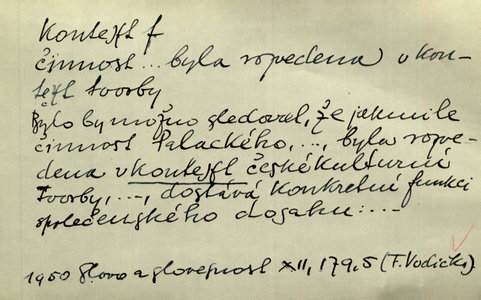 Kontext f
činnost ... byla uvedena v kon-
text tvorby
Bylo by možno sledovat, že jakmile
činnost Palackého, ..., byla uve-
dena v kontext české kulturní
tvorby, ..., dostává konkretní funkci
společenského dosahu: ...
1950 Slovo a slovesnost XII, 179,5 (F. Vodička)